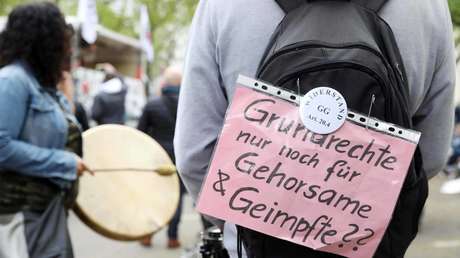 WIDERSTAND
GG
Art. 20.4
Grundrechte
nur noch für
Gehorsame
& Geimpfte??